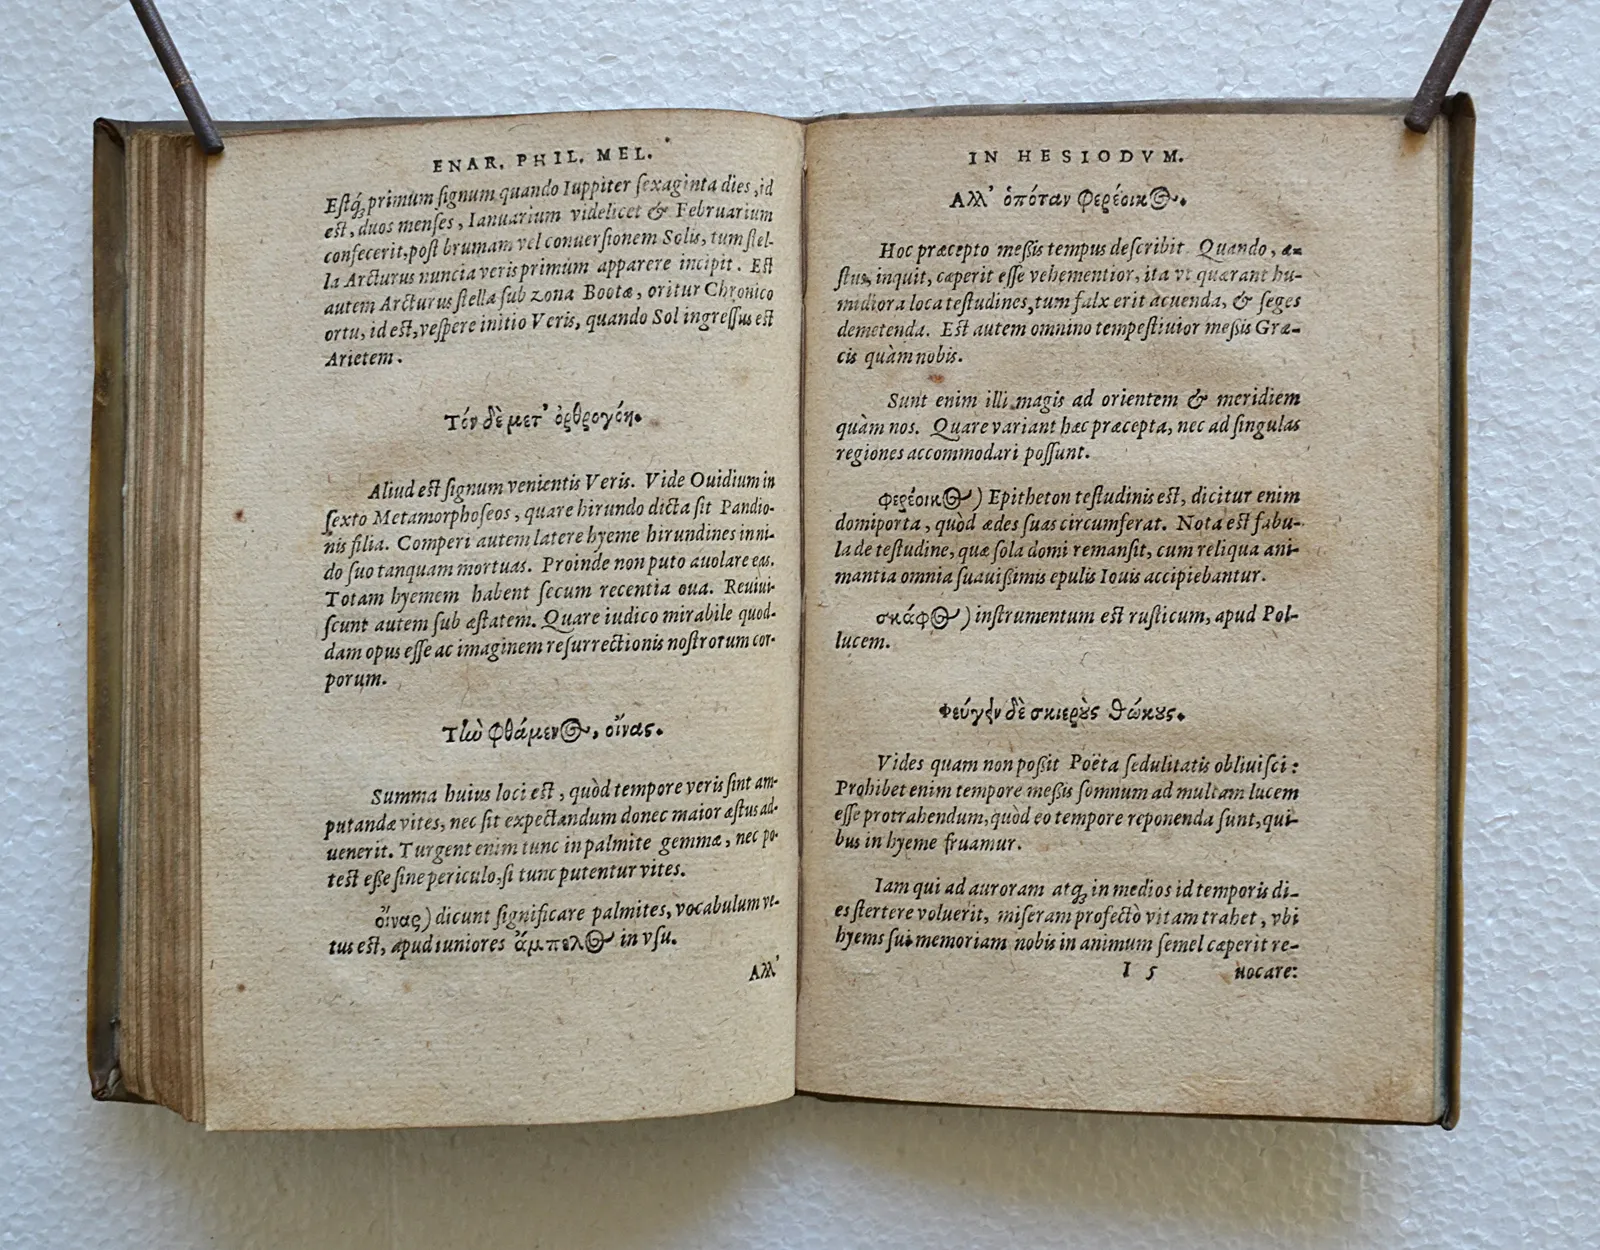 ENAR. PHIL. MEL.
Estq́; primum ſignum quando Iuppiter ſexaginta dies, id
est, duos menſes, Ianuarium videlicet & Februarium
confecerit, poſt brumam vel conuerſionem Solis, tum ſtel-
la Arcturus nuncia veris primùm apparere incipit. Est
autem Arcturus ſtella ſub zona Bootæ, oritur Chronico
ortu, id est, veſpere initio Veris, quando Sol ingreſſus est
Arietem.
Τόν δὲ μετ' ὀρθρογόη.
Aliud est ſignum venientis Veris. Vide Ouidium in
ſexto Metamorphoſeos, quare hirundo dicta ſit Pandio-
nis filia. Comperi autem latere hyeme hirundines in ni-
do ſuo tanquam mortuas. Proinde non puto auolare eas.
Totam hyemem habent ſecum recentia oua. Reuiui-
ſcunt autem ſub æſtatem. Quare iudico mirabile quod-
dam opus eſſe ac imaginem reſurrectionis noſtrorum cor-
porum.
Τὼ φθάμενος, οἴνας.
Summa huius loci est, quòd tempore veris ſint am-
putandæ vites, nec ſit expectandum donec maior æſtus ad-
uenerit. Turgent enim tunc in palmite gemmæ, nec po-
test eße ſine periculo, ſi tunc putentur vites.
οἴνας) dicunt ſignificare palmites, vocabulum ve-
tus est, apud iuniores ἄμπελος in vſu.
Αλλ'
IN HESIODVM.
Αλλ' ὁπόταν φερέοικος.
Hoc præcepto meßis tempus deſcribit. Quando, æ-
ſtus, inquit, cœperit eſſe vehementior, ita vt quærant hu-
midiora loca teſtudines, tum falx erit acuenda, & ſeges
demetenda. Est autem omnino tempeſtiuior meßis Græ-
cis quàm nobis.
Sunt enim illi magis ad orientem & meridiem
quàm nos. Quare variant hæc præcepta, nec ad ſingulas
regiones accommodari poſſunt.
φερέοικος) Epitheton teſtudinis est, dicitur enim
domiporta, quòd ædes ſuas circumferat. Nota est fabu-
la de teſtudine, quæ ſola domi remanſit, cum reliqua ani-
mantia omnia ſuauißimis epulis Iouis accipiebantur.
σκάφος) inſtrumentum est ruſticum, apud Pol-
lucem.
Φεύγειν δὲ σκιεροὺς θώκους.
Vides quam non poßit Poëta ſedulitatis obliuiſci:
Prohibet enim tempore meßis ſomnum ad multam lucem
eſſe protrahendum, quòd eo tempore reponenda ſunt, qui-
bus in hyeme fruamur.
Iam qui ad auroram atq; in medios id temporis di-
es ſtertere voluerit, miſeram profectò vitam trahet, vbi
hyems ſui memoriam nobis in animum ſemel cœperit re-
I 5 uocare: